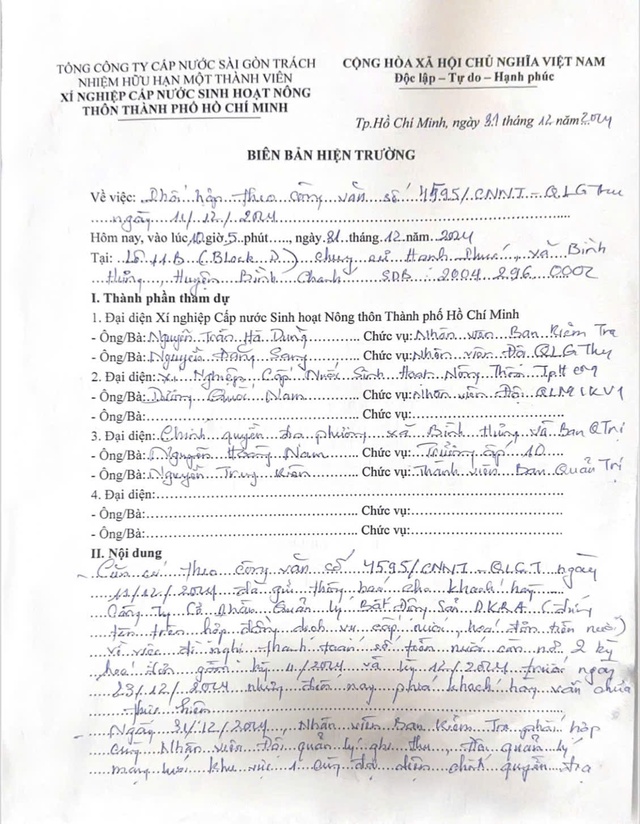 TỔNG CÔNG TY CẤP NƯỚC SÀI GÒN TRÁCH
NHIỆM HỮU HẠN MỘT THÀNH VIÊN
XÍ NGHIỆP CẤP NƯỚC SINH HOẠT NÔNG
THÔN THÀNH PHỐ HỒ CHÍ MINH
CỘNG HÒA XÃ HỘI CHỦ NGHĨA VIỆT NAM
Độc lập – Tự do – Hạnh phúc
Tp.Hồ Chí Minh, ngày 31 tháng 12 năm 2024
BIÊN BẢN HIỆN TRƯỜNG
Về việc: Phối hợp theo công văn số 4595/CNNT-QLGThu
ngày 11/12/2024
Hôm nay, vào lúc 10 giờ 5 phút....., ngày 31 tháng 12 năm 2024
Tại: Lô 11B (Block D) Chung cư Hạnh Phúc, xã Bình
Hưng, Huyện Bình Chánh SDB: 2004 296 0002
I. Thành phần tham dự
1. Đại diện Xí nghiệp Cấp nước Sinh hoạt Nông thôn Thành phố Hồ Chí Minh
- Ông/Bà: Nguyễn Trần Hà Chức vụ: Nhân viên Ban Kiểm Tra
- Ông/Bà: Nguyễn Đăng Sang Chức vụ: Nhân viên Đội QLGThu
2. Đại diện: Xí Nghiệp Cấp Nước Sinh Hoạt Nông Thôn TpHCM
- Ông/Bà: Dương Quốc Nam Chức vụ: Nhân viên Đội QLMLKV1
- Ông/Bà: Chức vụ:
3. Đại diện: Chính quyền địa phương xã Bình Hưng và Ban QTrị
- Ông/Bà: Nguyễn Hoàng Nam Chức vụ: Trưởng ấp 10
- Ông/Bà: Nguyễn Trung Kiên Chức vụ: Thành viên Ban Quản Trị
4. Đại diện:
- Ông/Bà: Chức vụ:
- Ông/Bà: Chức vụ:
II. Nội dung
- Căn cứ theo công văn số 4595/CNNT-QLGT ngày
11/12/2024 đã gửi thông báo cho khách hàng
Công Ty Cổ Phần Quản lý Bất Động Sản DKRA (đứng
tên trên hợp đồng dịch vụ cấp nước, hoá đơn tiền nước)
về việc đề nghị thanh toán số tiền nước còn nợ 2 kỳ
hoá đơn gồm kỳ 11/2024 và kỳ 12/2024 trước ngày
23/12/2024 nhưng đến nay phía khách hàng vẫn chưa
thực hiện
- Ngày 31/12/2024, Nhân viên Ban Kiểm Tra phối hợp
cùng Nhân viên Đội quản lý ghi thu, Đội quản lý
mạng lưới khu vực 1 cùng đại diện chính quyền địa